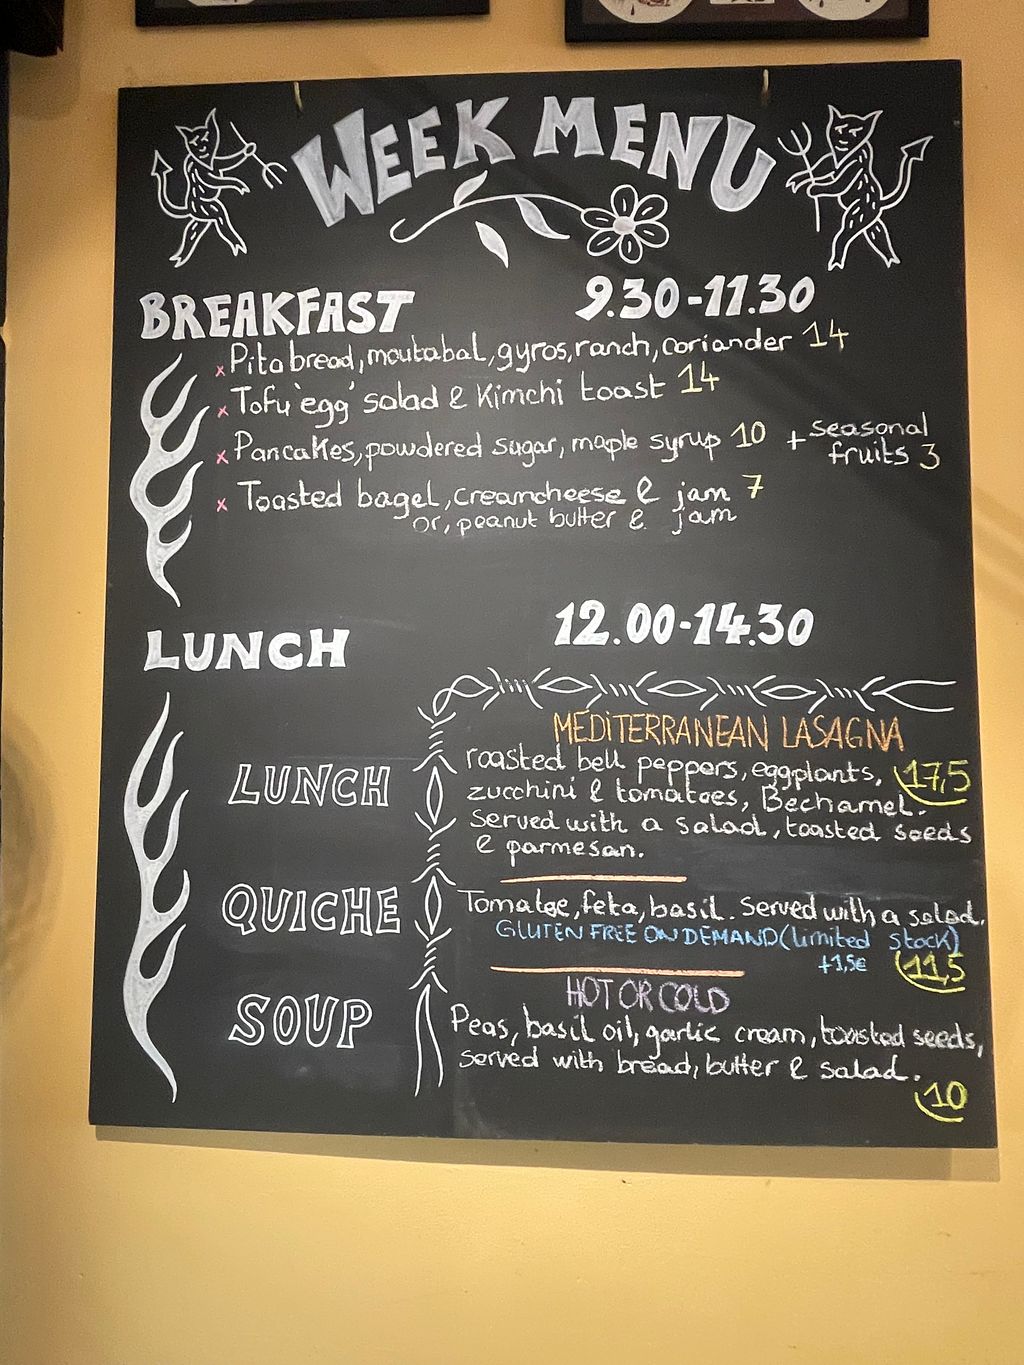 WEEK MENU
BREAKFAST 9.30-11.30
x Pita bread, moutabal, gyros, ranch, coriander 14
x Tofu 'egg' salad & Kimchi toast 14
x Pancakes, powdered sugar, maple syrup 10 + seasonal
fruits 3
x Toasted bagel, creamcheese & jam 7
or, peanut butter & jam
LUNCH 12.00-14.30
MEDITERRANEAN LASAGNA
LUNCH
roasted bell peppers, eggplants, 17,5
zucchini & tomatoes, Bechamel.
Served with a salad, toasted seeds
& parmesan.
QUICHE
Tomatoe, feta, basil. Served with a salad.
GLUTEN FREE ON DEMAND (limited stock)
+1,5€ 11,5
HOT OR COLD
SOUP
Peas, basil oil, garlic cream, toasted seeds,
served with bread, butter & salad.
10